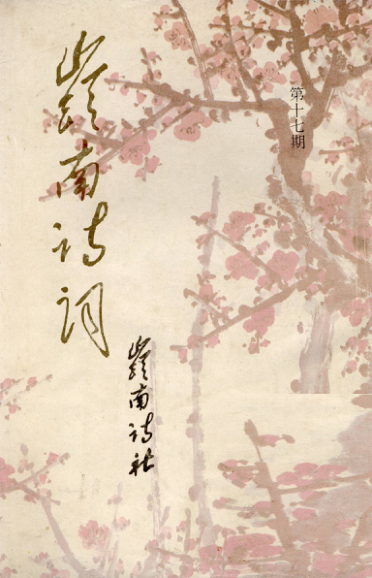 第十七期
嶺南诗词
嶺南诗社